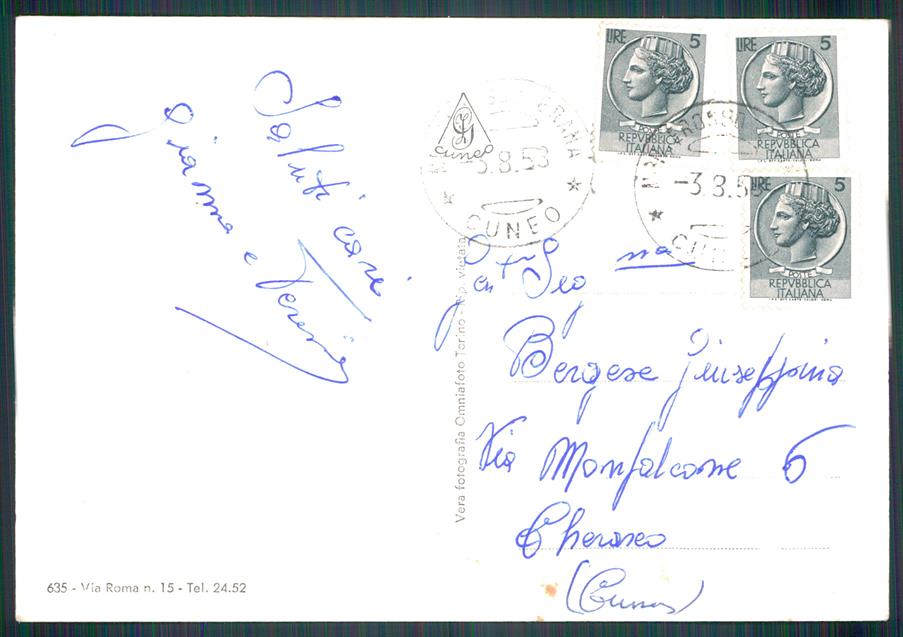 Saluti cari
Gianna e Teresina
LIRE 5
POSTE
REPVBBLICA
ITALIANA
LIRE 5
POSTE
REPVBBLICA
ITALIANA
LIRE 5
POSTE
REPVBBLICA
ITALIANA
CUNEO
-3.8.58
CUNEO
-3.8.5
CUNEO
Gent Sig na
Bergese Giuseppina
Via Monfalcone 6
Cherasco
(Cuneo)
Vera fotografia Omniafoto Torino - Rip. vietata
635 - Via Roma n. 15 - Tel. 24.52